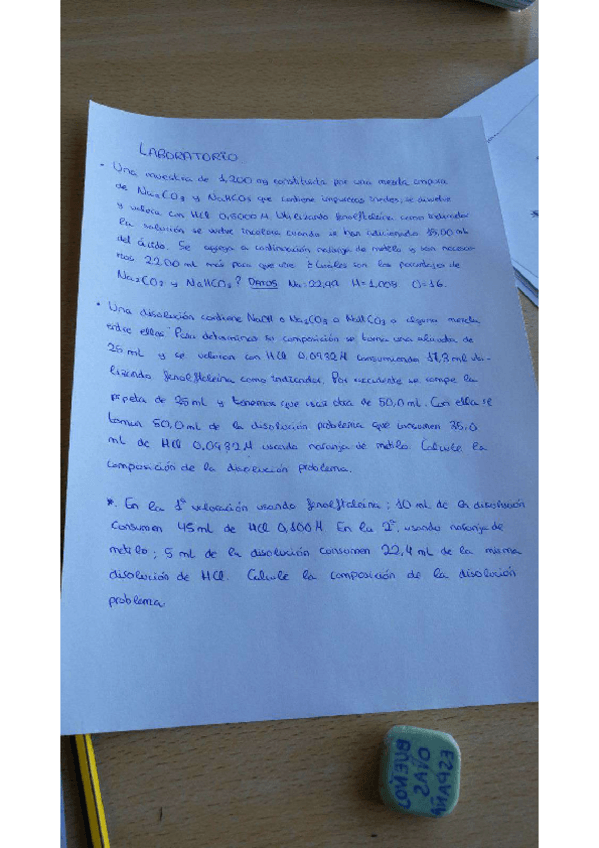 LABORATORIO
· Una muestra de 1,200 mg constituida por una mezcla impura
de Na₂CO₃ y NaHCO₃ que contiene impurezas inertes, se disuelve
y valora con HCl 0,5000 M. Utilizando fenolftaleína como indicador
la solución se vuelve incolora cuando se han adicionado 15,00 mL
del ácido. Se agrega a continuación naranja de metilo y son necesa-
rios 22,00 mL más para que vire. ¿Cuáles son los porcentajes de
Na₂CO₃ y NaHCO₃? DATOS Na=22,99 H=1,008 O=16.
· Una disolución contiene NaOH o Na₂CO₃ o NaHCO₃ o alguna mezcla
entre ellos. Para determinar su composición se toma una alícuota de
25 mL y se valoran con HCl 0,0932 M consumiendo 11,3 ml uti-
lizando fenolftaleína como indicador. Por accidente se rompe la
pipeta de 25 ml y tenemos que usar otra de 50,0 ml. Con ella se
toman 50,0 ml de la disolución problema que consumen 35,0
ml de HCl 0,0932 M usando naranja de metilo. Calcule la
composición de la disolución problema.
*. En la 1ª valoración usando fenolftaleína; 10 ml de la disolución
consumen 45 ml de HCl 0,100 M. En la 2ª, usando naranja de
metilo; 5 ml de la disolución consumen 22,4 ml de la misma
disolución de HCl. Calcule la composición de la disolución
problema.
BUENO
OVAS
ESPAÑA